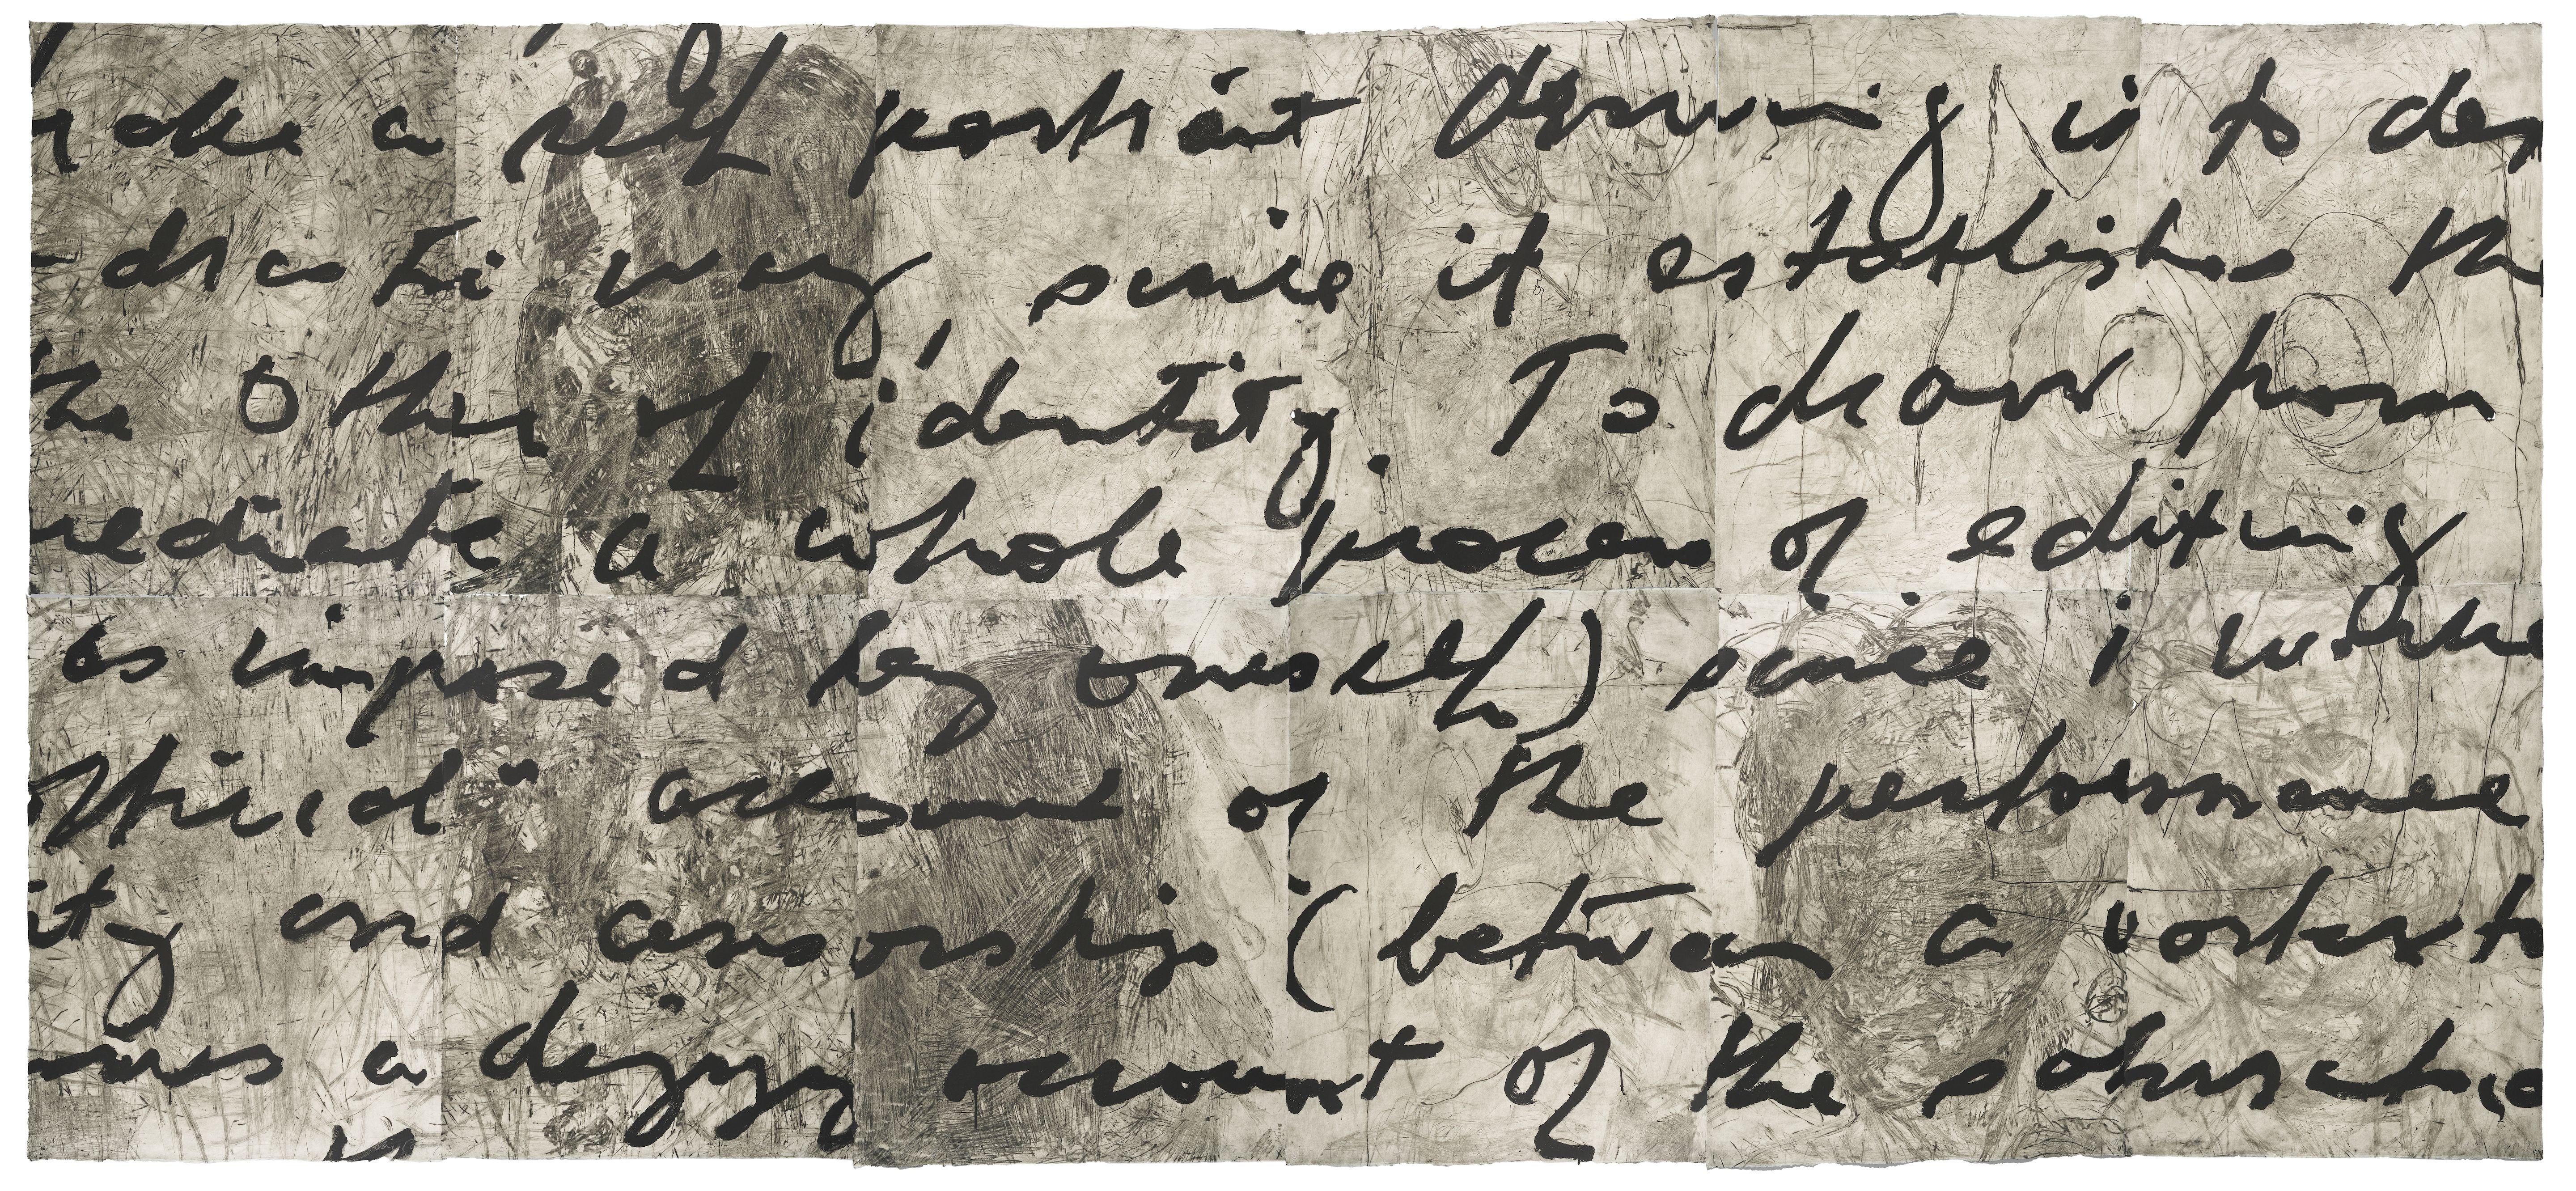 make a self portrait drawing is to
drastic way, since it establishes th
the Other of identity. To draw from
mediate a whole process of editing
as imposed by oneself) since i
account of the performance
ity and censorship (between a
a dizzy account of the